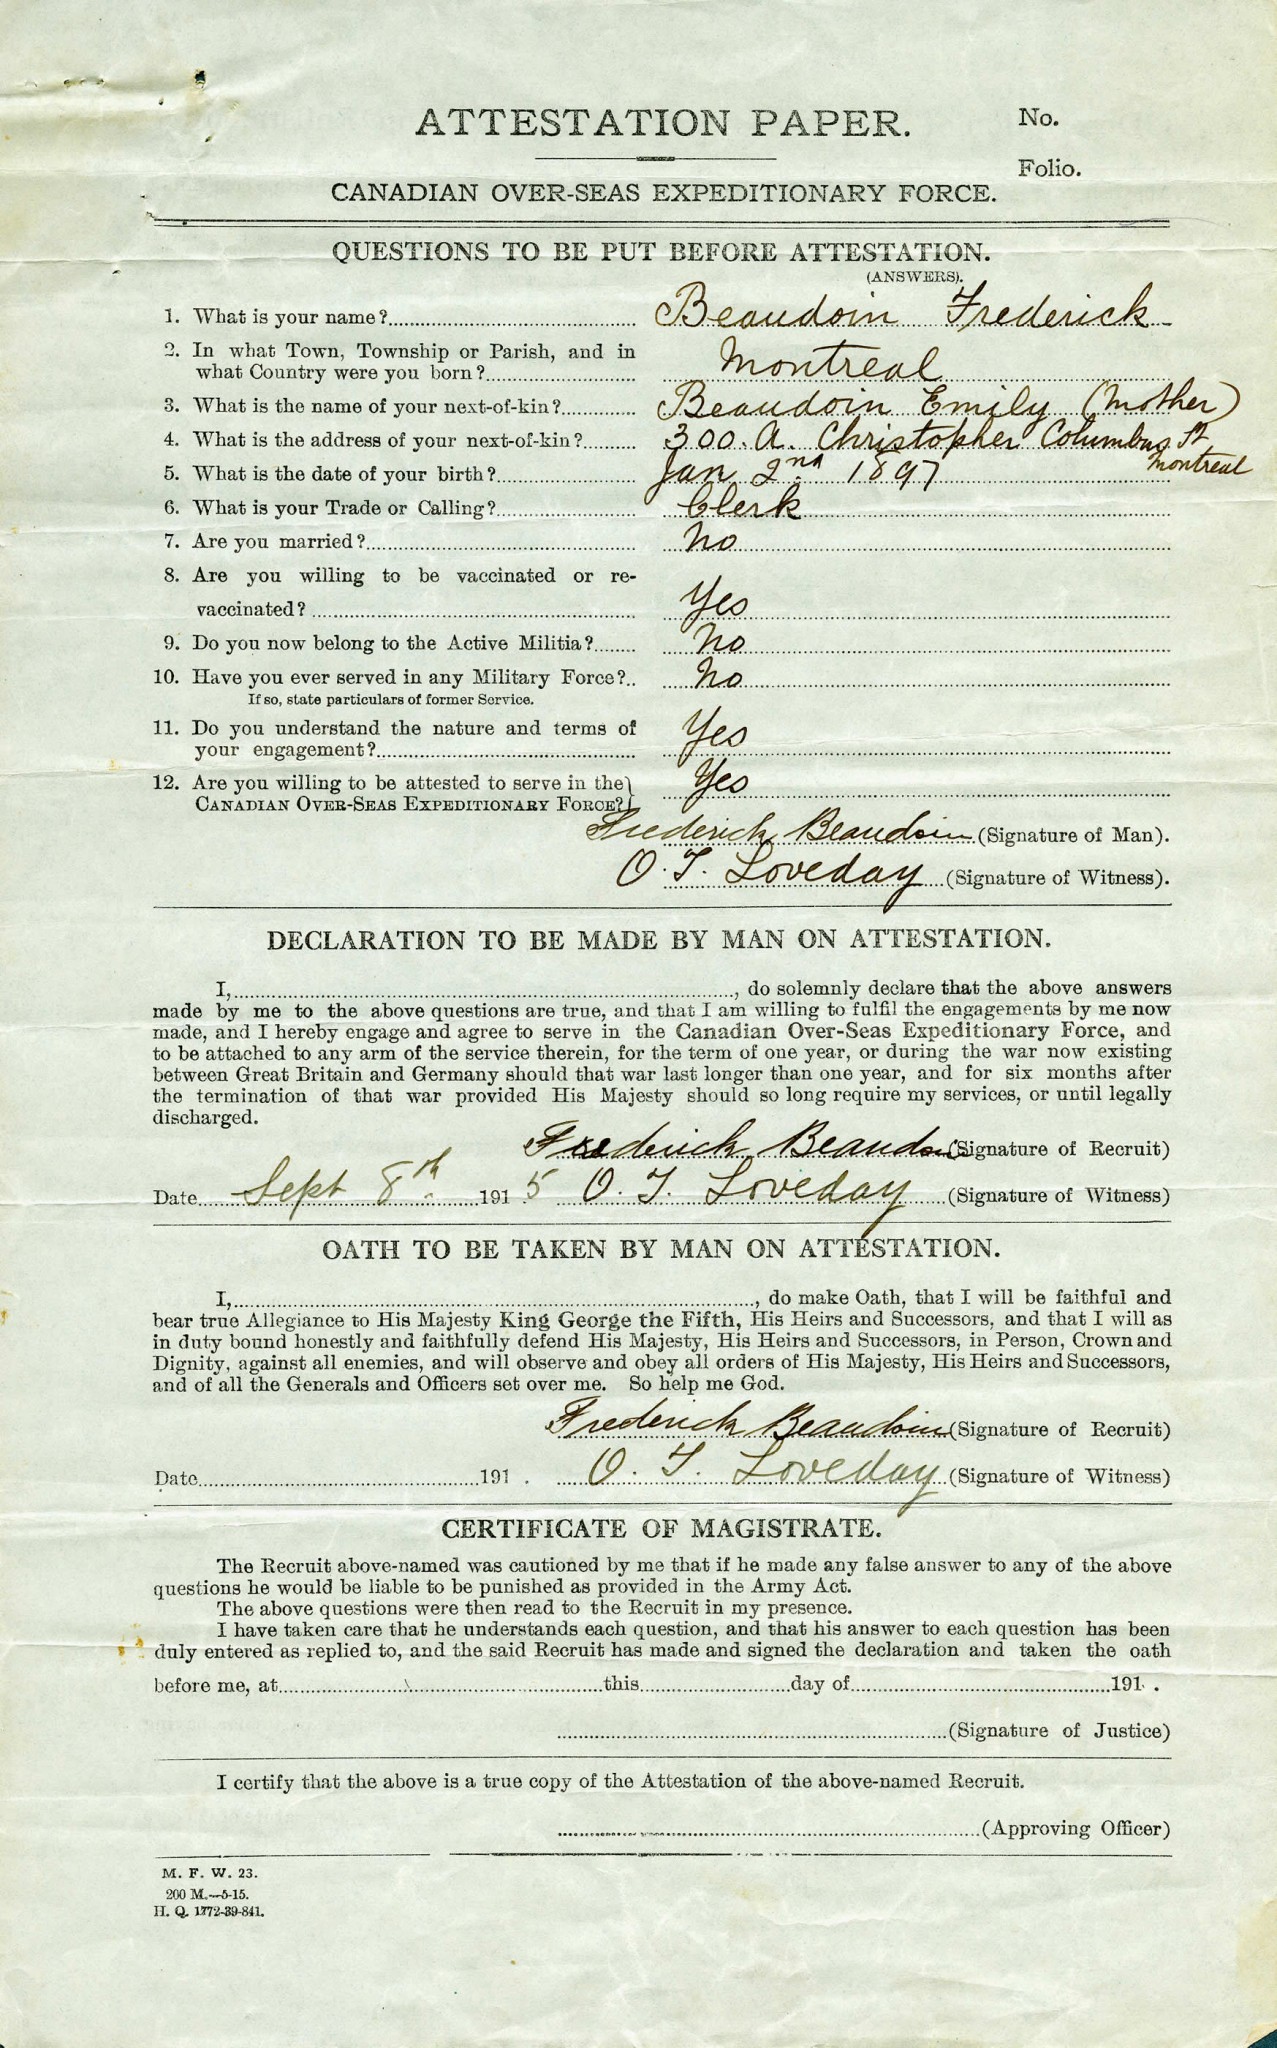 ATTESTATION PAPER.
No.
Folio.
CANADIAN OVER-SEAS EXPEDITIONARY FORCE.
QUESTIONS TO BE PUT BEFORE ATTESTATION.
(ANSWERS).
1. What is your name? Beaudoin Frederick
2. In what Town, Township or Parish, and in
what Country were you born? Montreal
3. What is the name of your next-of-kin? Beaudoin Emily (Mother)
4. What is the address of your next-of-kin? 300. A. Christopher Columbus St
Montreal
5. What is the date of your birth? Jan 2nd 1897
6. What is your Trade or Calling? Clerk
7. Are you married? No
8. Are you willing to be vaccinated or re-
vaccinated? Yes
9. Do you now belong to the Active Militia? No
10. Have you ever served in any Military Force? No
If so, state particulars of former Service.
11. Do you understand the nature and terms of
your engagement? Yes
12. Are you willing to be attested to serve in the
CANADIAN OVER-SEAS EXPEDITIONARY FORCE? Yes
Frederick Beaudoin (Signature of Man).
O. T. Loveday (Signature of Witness).
DECLARATION TO BE MADE BY MAN ON ATTESTATION.
I, , do solemnly declare that the above answers
made by me to the above questions are true, and that I am willing to fulfil the engagements by me now
made, and I hereby engage and agree to serve in the Canadian Over-Seas Expeditionary Force, and
to be attached to any arm of the service therein, for the term of one year, or during the war now existing
between Great Britain and Germany should that war last longer than one year, and for six months after
the termination of that war provided His Majesty should so long require my services, or until legally
discharged.
Frederick Beaudoin (Signature of Recruit)
Date Sept 8th 1915 O. T. Loveday (Signature of Witness)
OATH TO BE TAKEN BY MAN ON ATTESTATION.
I, , do make Oath, that I will be faithful and
bear true Allegiance to His Majesty King George the Fifth, His Heirs and Successors, and that I will as
in duty bound honestly and faithfully defend His Majesty, His Heirs and Successors, in Person, Crown and
Dignity, against all enemies, and will observe and obey all orders of His Majesty, His Heirs and Successors,
and of all the Generals and Officers set over me. So help me God.
Frederick Beaudoin (Signature of Recruit)
Date 191 . O. T. Loveday (Signature of Witness)
CERTIFICATE OF MAGISTRATE.
The Recruit above-named was cautioned by me that if he made any false answer to any of the above
questions he would be liable to be punished as provided in the Army Act.
The above questions were then read to the Recruit in my presence.
I have taken care that he understands each question, and that his answer to each question has been
duly entered as replied to, and the said Recruit has made and signed the declaration and taken the oath
before me, at this day of 191 .
(Signature of Justice)
I certify that the above is a true copy of the Attestation of the above-named Recruit.
(Approving Officer)
M. F. W. 23.
200 M.—5-15.
H. Q. 1772-39-841.